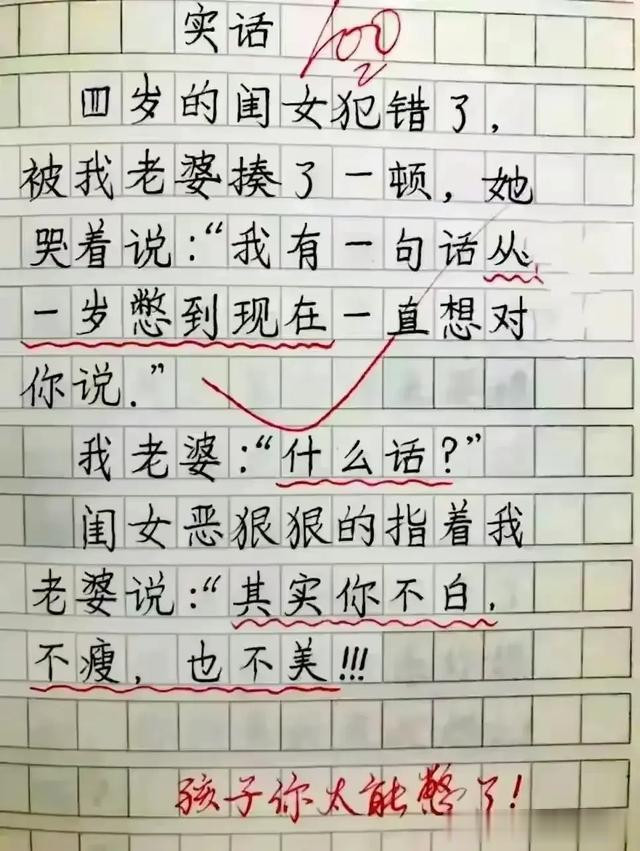 实话
100
四岁的闺女犯错了，
被我老婆揍了一顿，她
哭着说：“我有一句话从
一岁憋到现在一直想对
你说.”
我老婆：“什么话？”
闺女恶狠狠的指着我
老婆说：“其实你不白，
不瘦，也不美!!!
孩子你太能憋了！